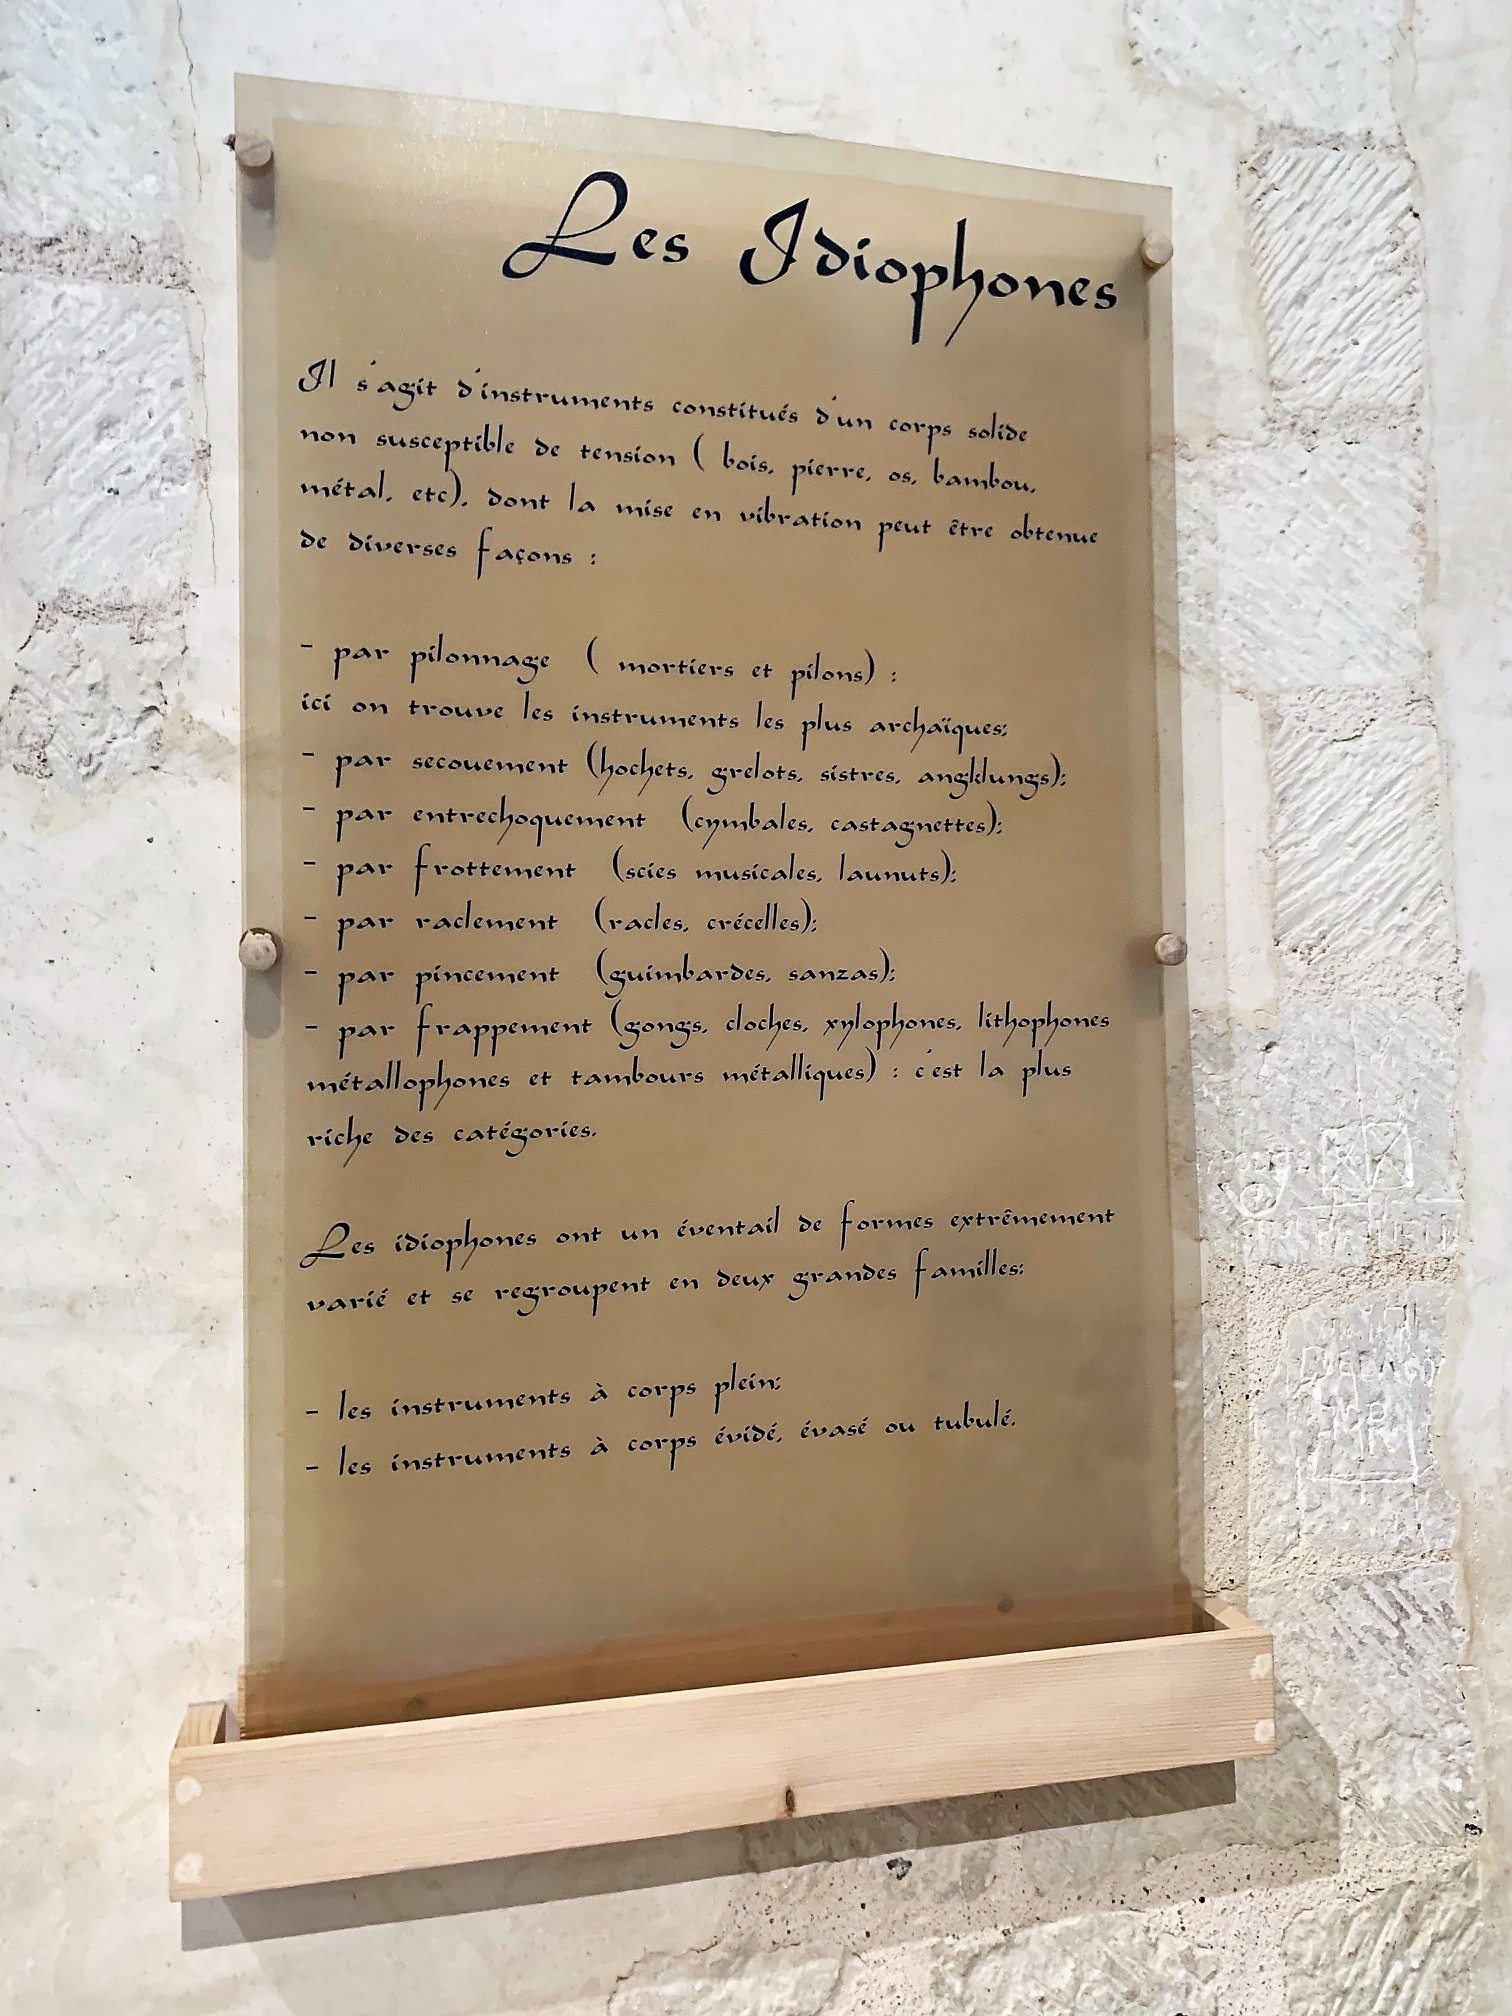 Les Idiophones
Il s'agit d'instruments constitués d'un corps solide
non susceptible de tension ( bois, pierre, os, bambou,
métal, etc), dont la mise en vibration peut être obtenue
de diverses façons :
- par pilonnage ( mortiers et pilons) :
ici on trouve les instruments les plus archaïques;
- par secouement (hochets, grelots, sistres, angklungs);
- par entrechoquement (cymbales, castagnettes);
- par frottement (scies musicales, launuts);
- par raclement (racles, crécelles);
- par pincement (guimbardes, sanzas);
- par frappement (gongs, cloches, xylophones, lithophones
métallophones et tambours métalliques) : c'est la plus
riche des catégories.
Les idiophones ont un éventail de formes extrêmement
varié et se regroupent en deux grandes familles:
- les instruments à corps plein;
- les instruments à corps évidé, évasé ou tubulé.